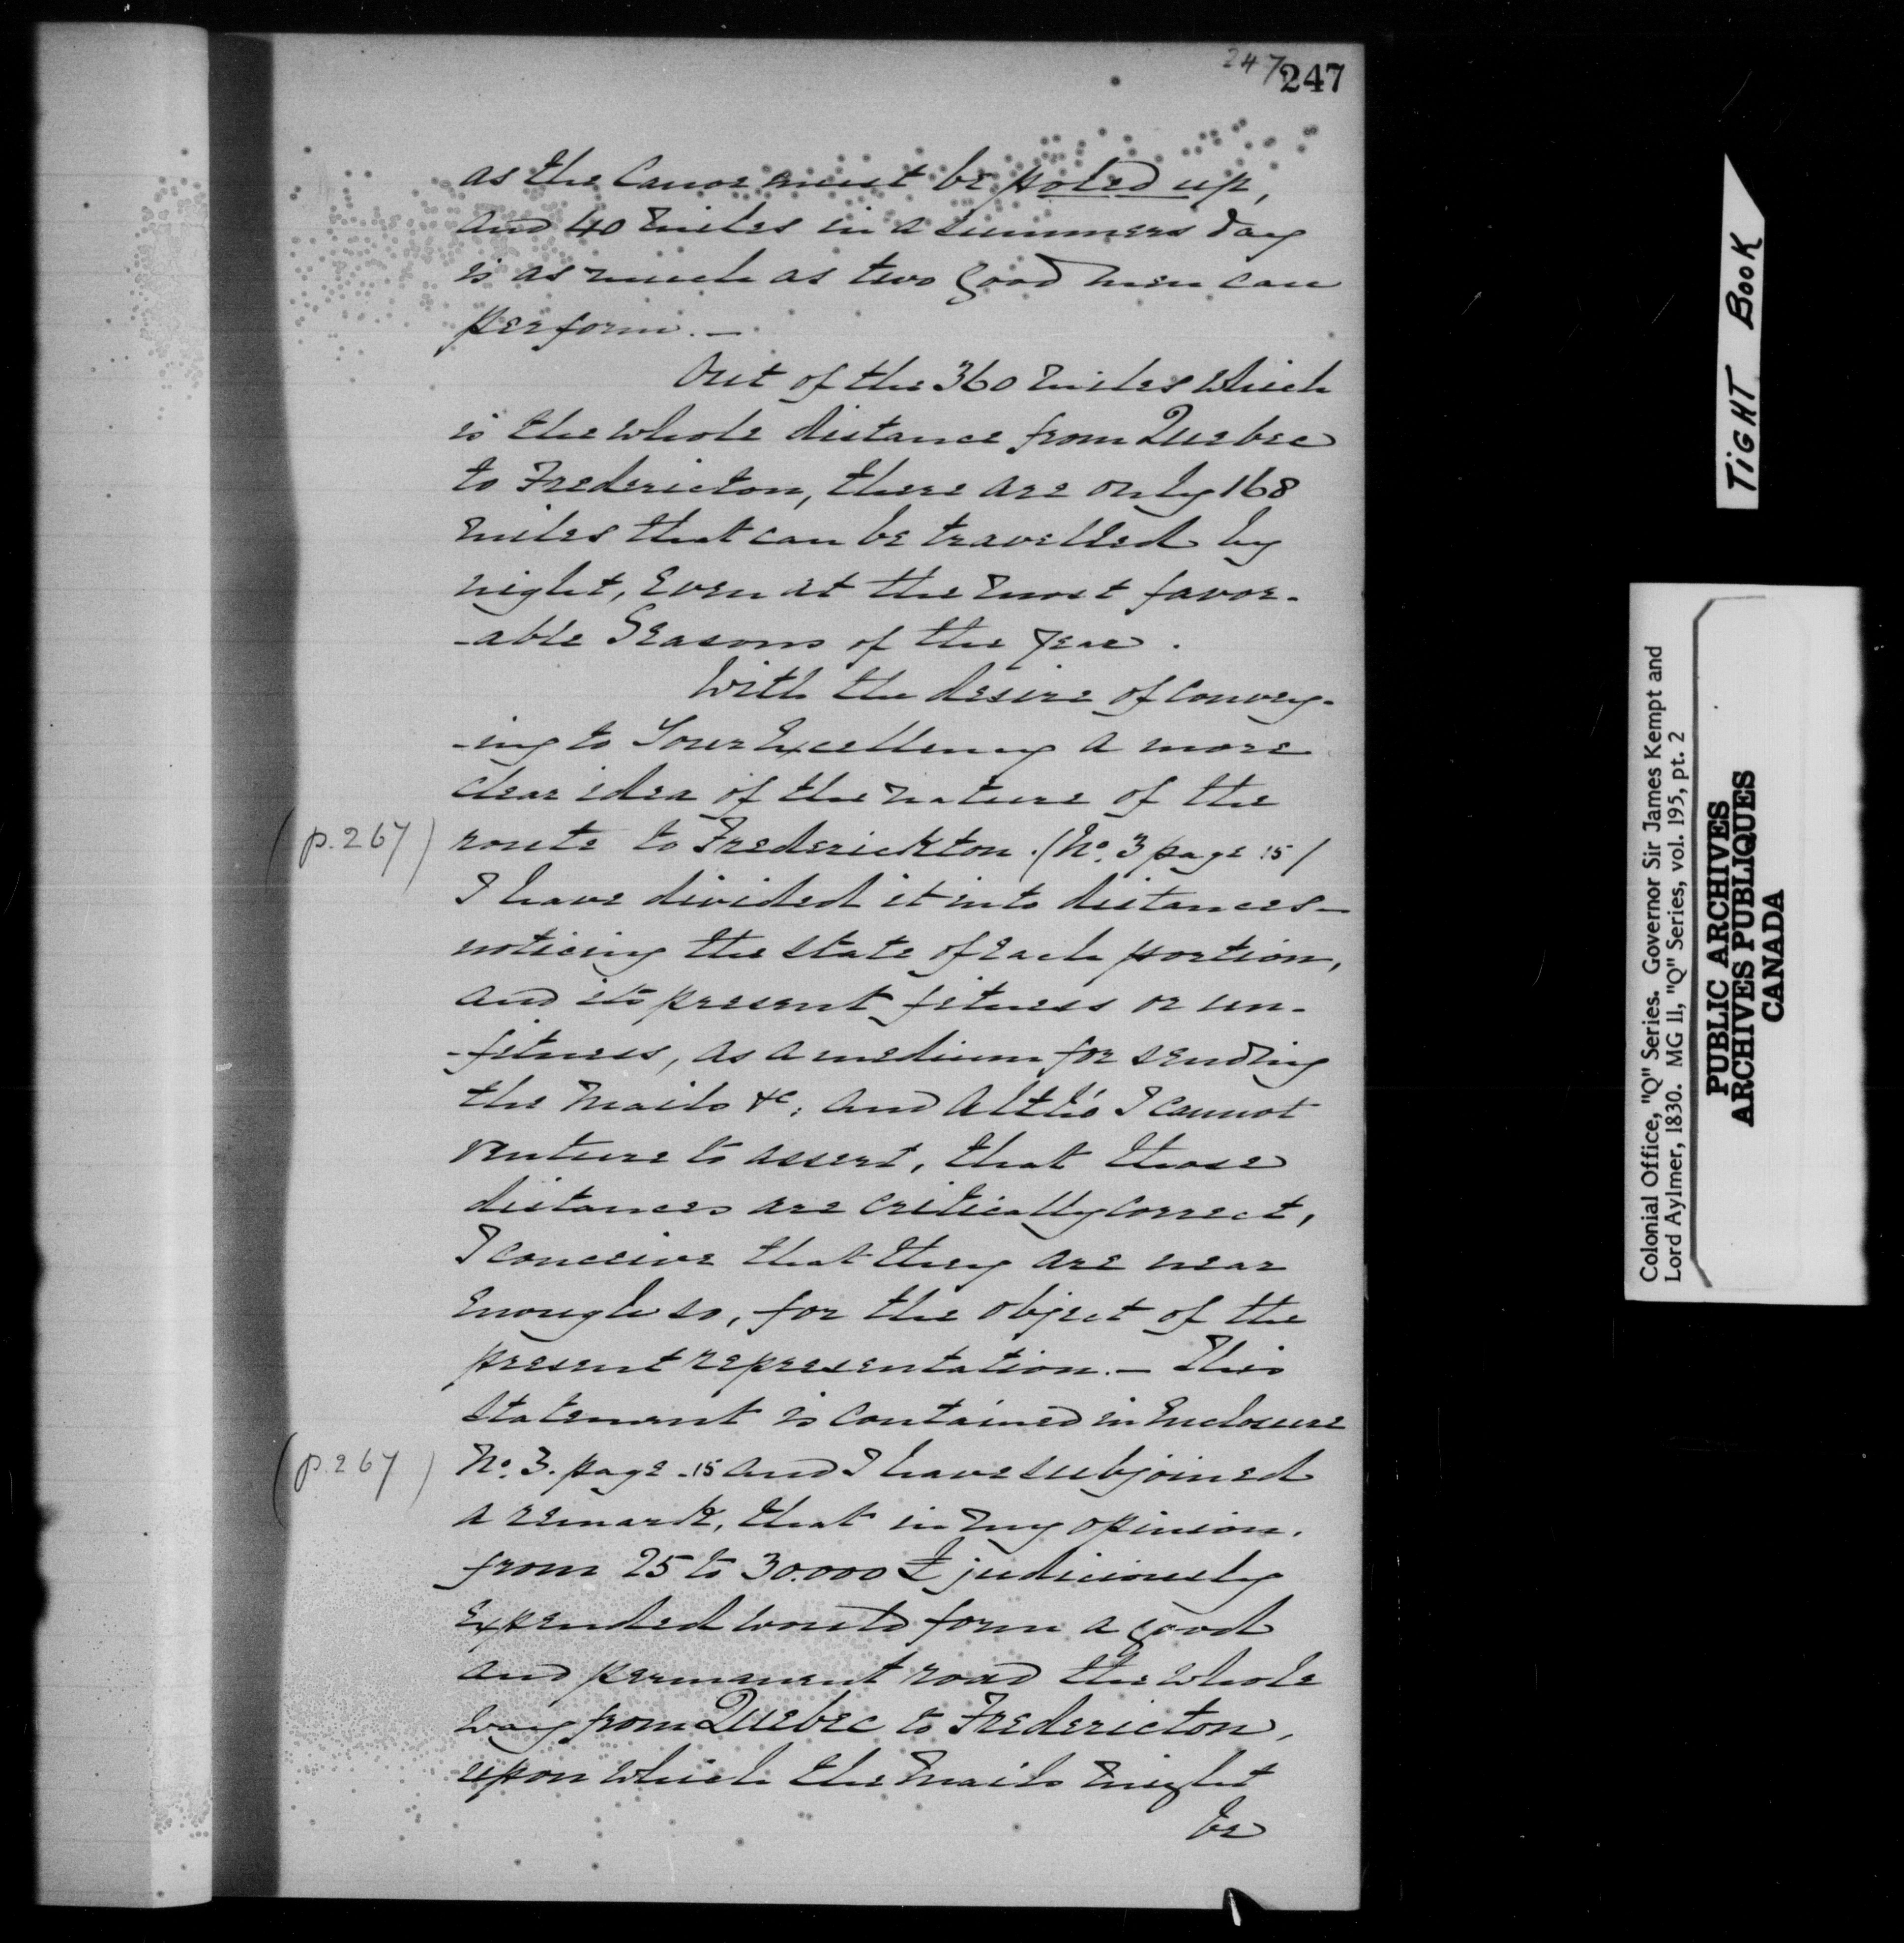 247
247
as the Canoe must be poled up,
and 40 Miles in a summers day
is as much as two good men can
perform. —
Out of the 360 Miles which
is the whole distance from Quebec
to Fredericton, there are only 168
Miles that can be travelled by
night, Even at the Most favor-
-able Seasons of the Year.
With the desire of convey-
-ing to Your Excellency a more
clear idea of the nature of the
(p. 267) route to Frederickton. (No. 3 page 15)
I have divided it into distances—
noticing the state of Each portion,
and its present fitness or un-
-fitness, as a medium for sending
the Mails &c; and Altho' I cannot
venture to assert, that those
distances are critically correct,
I conceive that they are near
Enough so, for the object of the
present representation. — This
statement is contained in Enclosure
(p. 267) No. 3. page 15 and I have subjoined
a remark, that in my opinion,
from 25 to 30.000 £ judiciously
Expended would form a good
and permanent road the whole
way from Quebec to Fredericton,
upon which the Mails might
be
TIGHT BOOK
Colonial Office, "Q" Series. Governor Sir James Kempt and
Lord Aylmer, 1830. MG 11, "Q" Series, vol. 195, pt. 2
PUBLIC ARCHIVES
ARCHIVES PUBLIQUES
CANADA